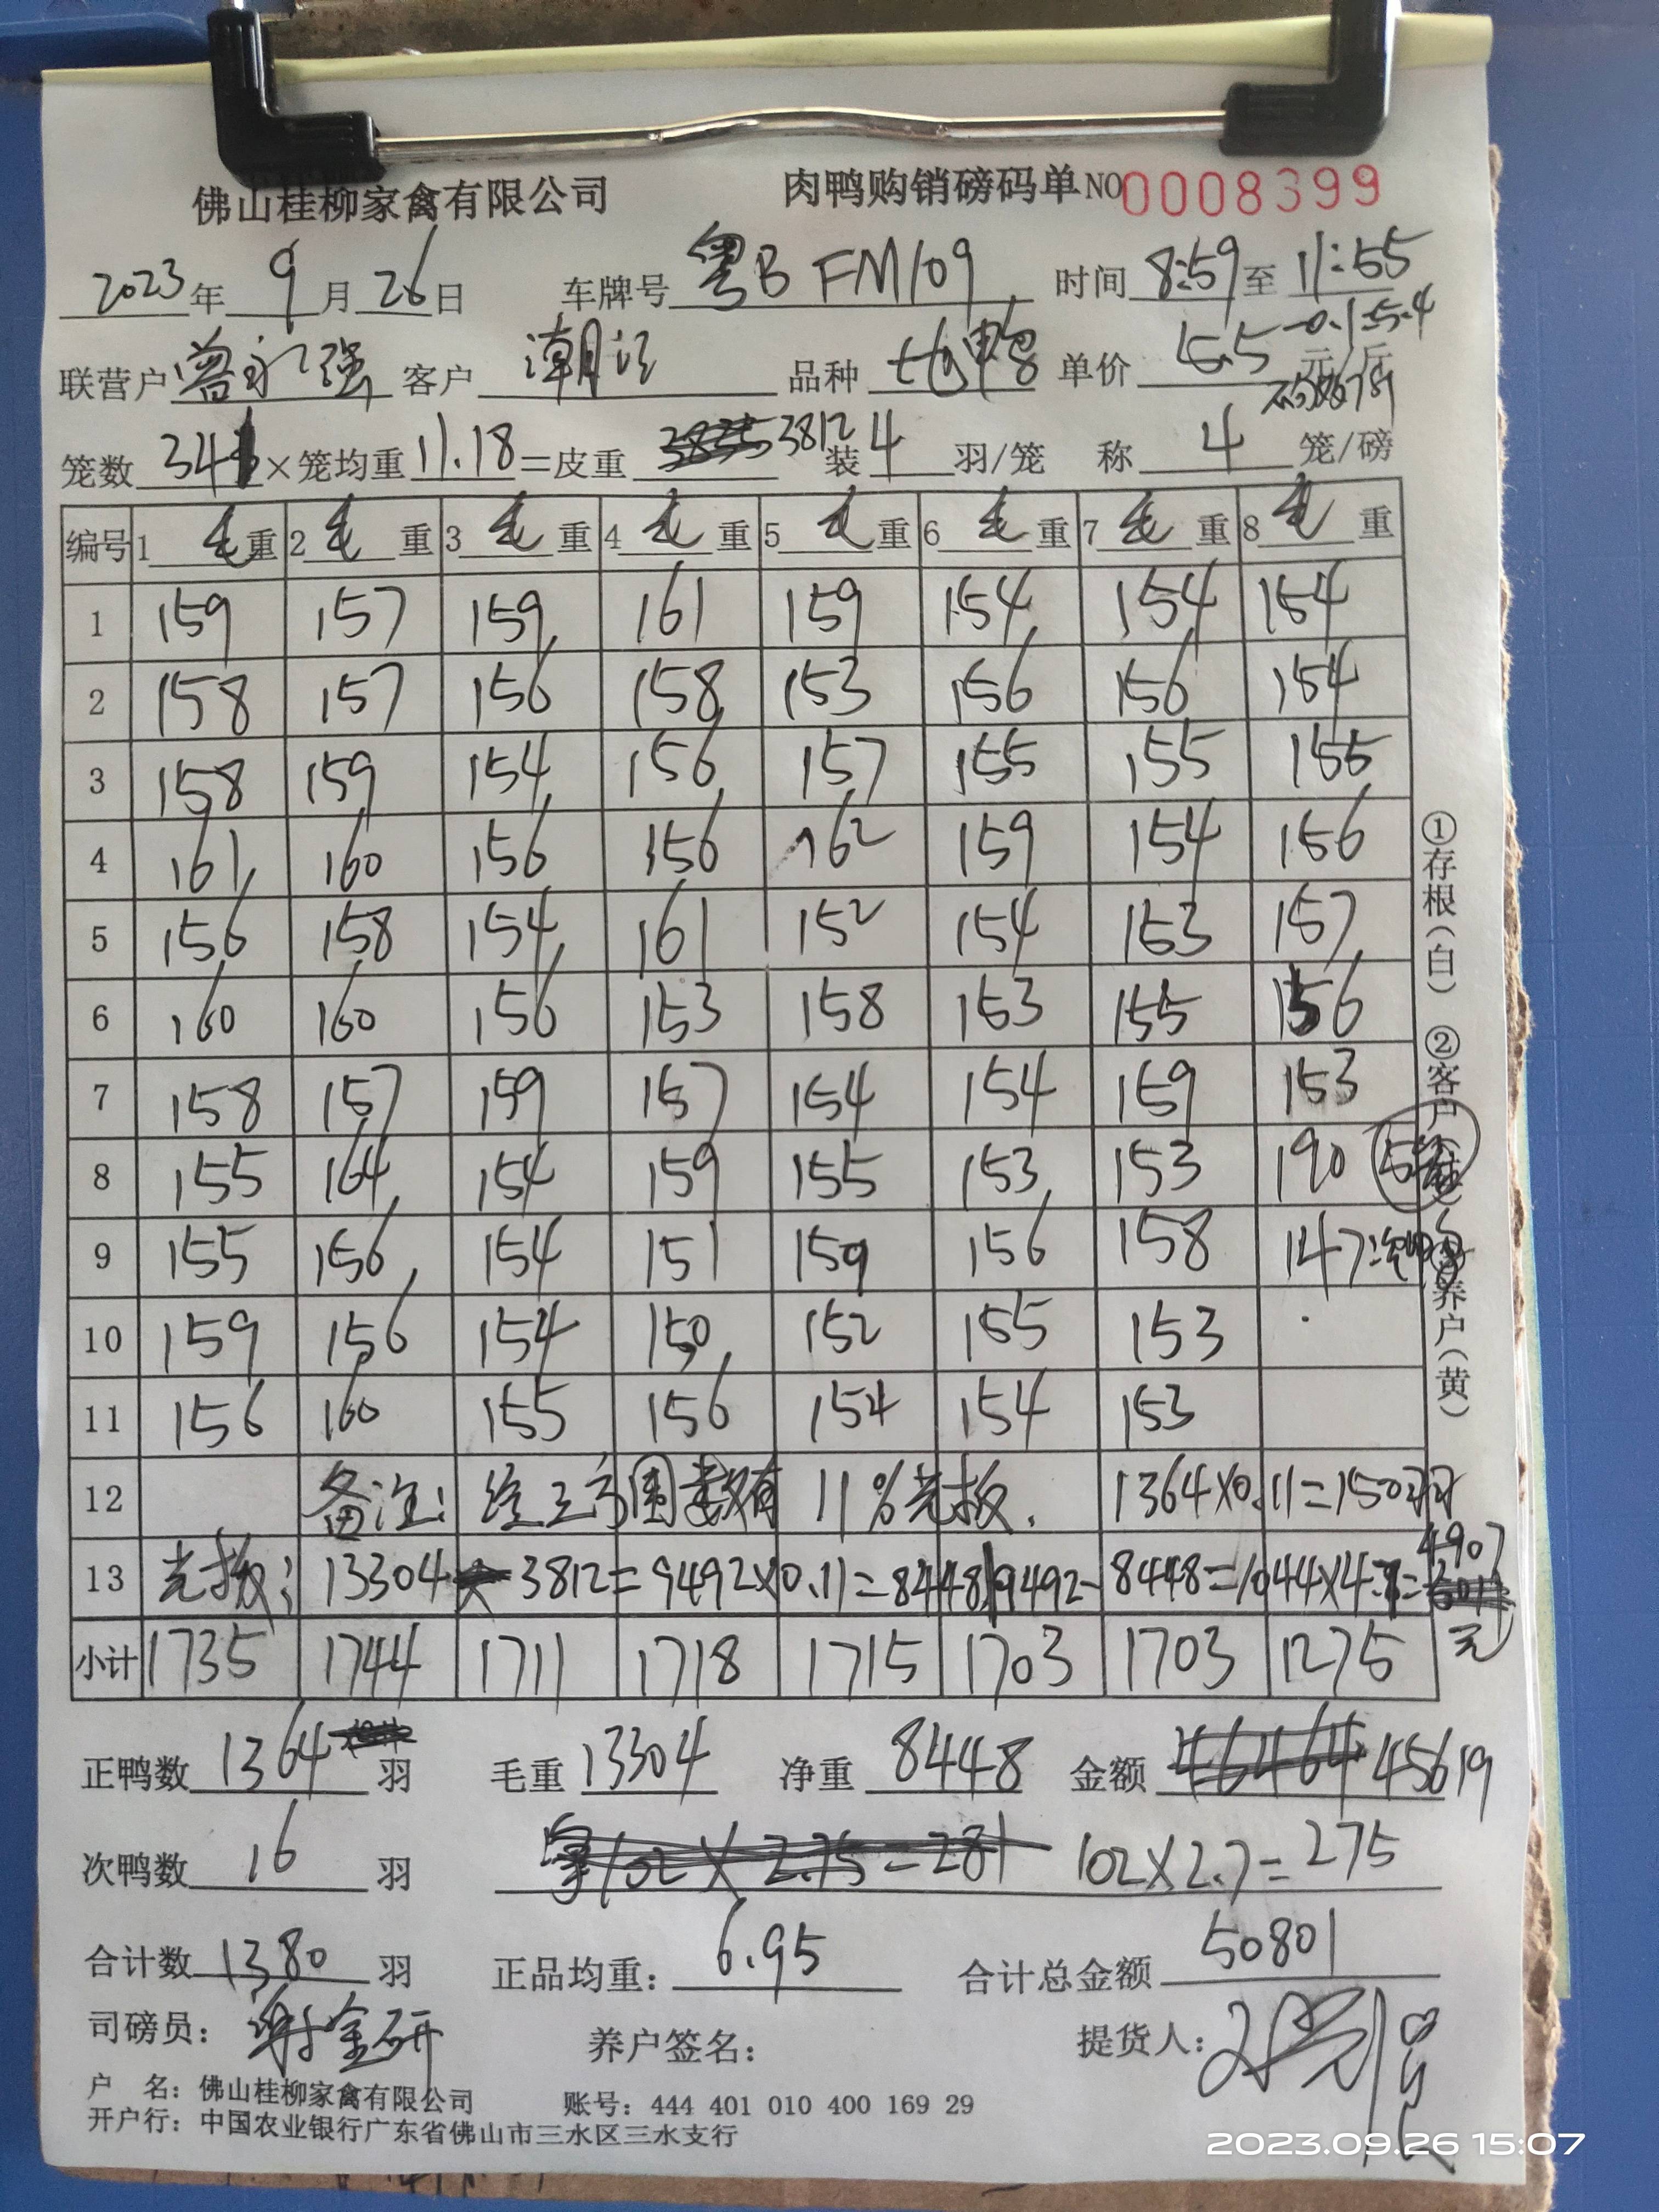 佛山桂柳家禽有限公司 肉鸭购销磅码单 NO 0008399
2023年 9月 26日 车牌号 粤B FM109 时间 8:59 至 11:55
联营户 曾永强 客户 潮江 品种 土鸭 单价 5.5 -0.1=5.4 元/斤
笼数 341 ×笼均重 11.18 =皮重 3812 装 4 羽/笼 称 4 笼/磅
编号 1 毛重 2 毛重 3 毛重 4 毛重 5 毛重 6 毛重 7 毛重 8 毛重
1 159 157 159 161 159 154 154 154
2 158 157 156 158 153 156 156 154
3 158 159 154 156 157 155 155 155
4 161 160 156 156 162 159 154 156
5 156 158 154 161 152 154 153 157
6 160 160 156 153 158 153 155 156
7 158 157 159 157 154 154 159 153
8 155 164 154 159 155 153 153 190
9 155 156 154 151 159 156 158 147
10 159 156 154 150 152 155 153
11 156 160 155 156 154 154 153
12 备注: 11%光板. 1364×0.11=150羽
13 光板: 13304-3812=9492×0.11=8448 9492-8448=1044×4.7=4907元
小计 1735 1744 1711 1718 1715 1703 1703 1275
①存根(白) ②客户 养户(黄)
正鸭数 1364 羽 毛重 13304 净重 8448 金额 45619
次鸭数 16 羽 102×2.7=275
合计数 1380 羽 正品均重: 6.95 合计总金额 50801
司磅员: 谢金研 养户签名: 提货人:
户 名: 佛山桂柳家禽有限公司 账号: 444 401 010 400 169 29
开户行: 中国农业银行广东省佛山市三水区三水支行
2023.09.26 15:07